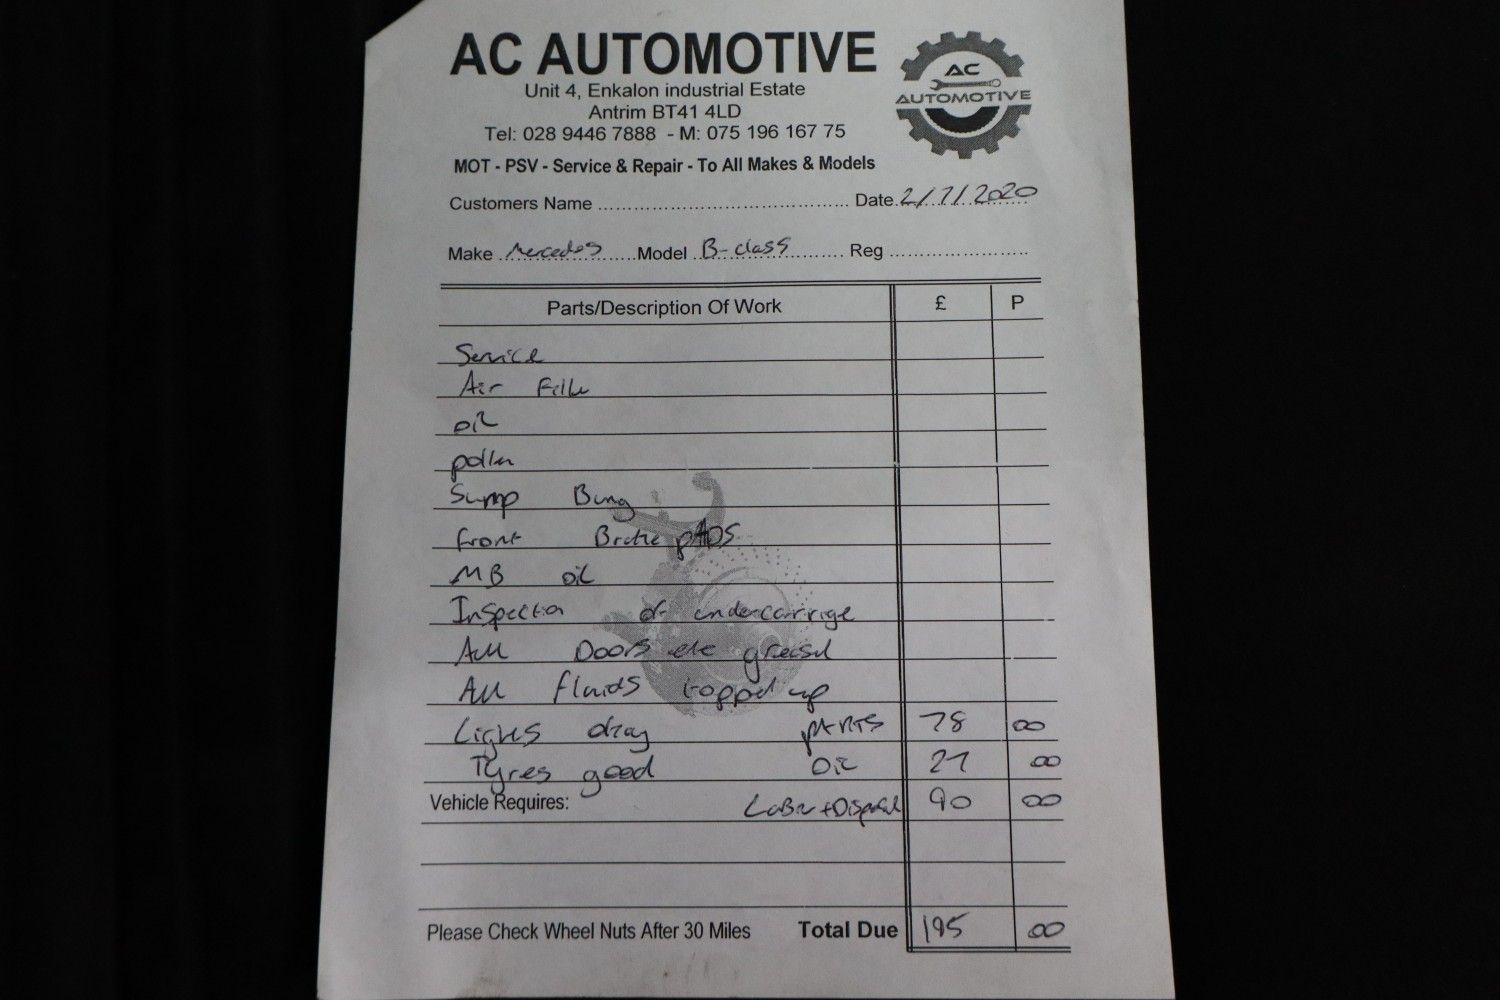 AC AUTOMOTIVE
Unit 4, Enkalon industrial Estate
Antrim BT41 4LD
Tel: 028 9446 7888 - M: 075 196 167 75
MOT - PSV - Service & Repair - To All Makes & Models
AC
AUTOMOTIVE
Customers Name Date 2/7/2020
Make Mercedes Model B-class Reg
Parts/Description Of Work £ P
Service
Air Filter
oil
pollen
Sump Bung
Front Brake pADS
MB oil
Inspection of undercarrige
All Doors etc greased
All fluids topped up
Lights okay pARTS 78 00
Tyres good Oil 27 00
Vehicle Requires: Labour + Disposal 90 00
Please Check Wheel Nuts After 30 Miles Total Due 195 00